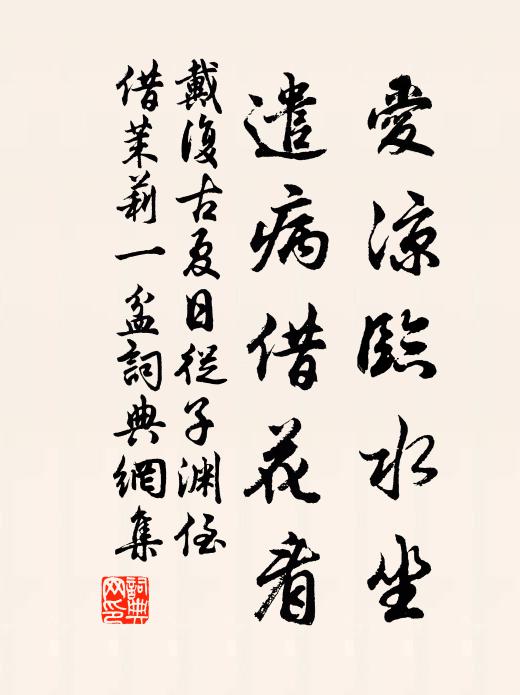 愛涼臨水坐
遣病借花看
戴復古夏日從子淵侄
借茉莉一盆詞典網集
詞典網印